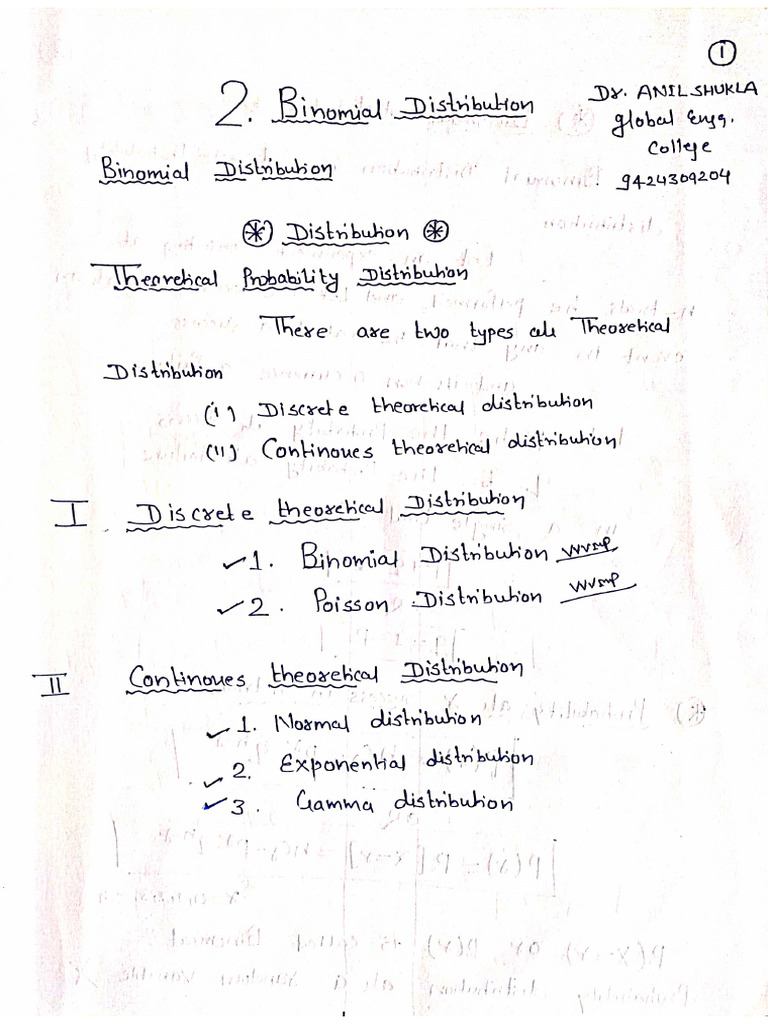 1
2. Binomial Distribution
Dr. ANIL SHUKLA
Global Engg.
College
9424309204
Binomial Distribution
Distribution
Theoretical Probability Distribution
There are two types Theoretical
Distribution
(i) Discrete theoretical distribution
(ii) Continoues theoretical distribution
I Discrete theoretical Distribution
1. Binomial Distribution VVIMP
2. Poisson Distribution VVIMP
II Continoues theoretical Distribution
1. Normal distribution
2. Exponential distribution
3. Gamma distribution